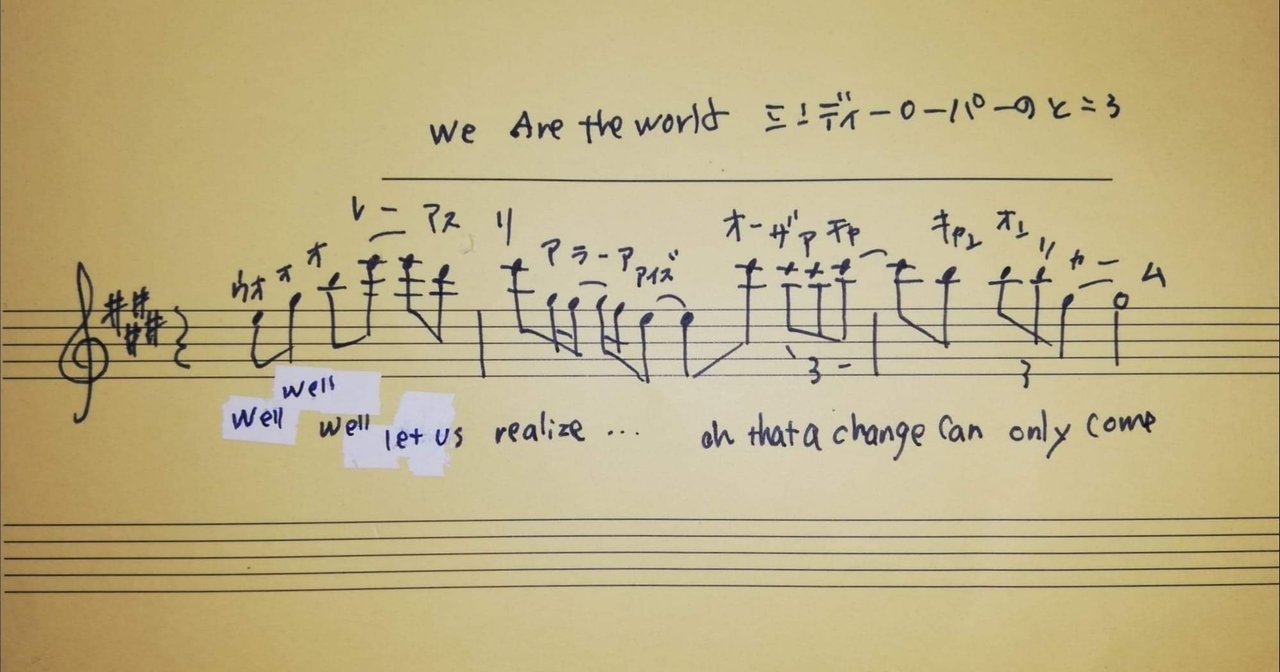 we Are the world シンディーローパーのところ
レー アス リ オーザアチャ チェン オン リ
ウオ オ オ アラーア アイズ カー ム
3 3
well
well well let us realize ... oh that a change can only come